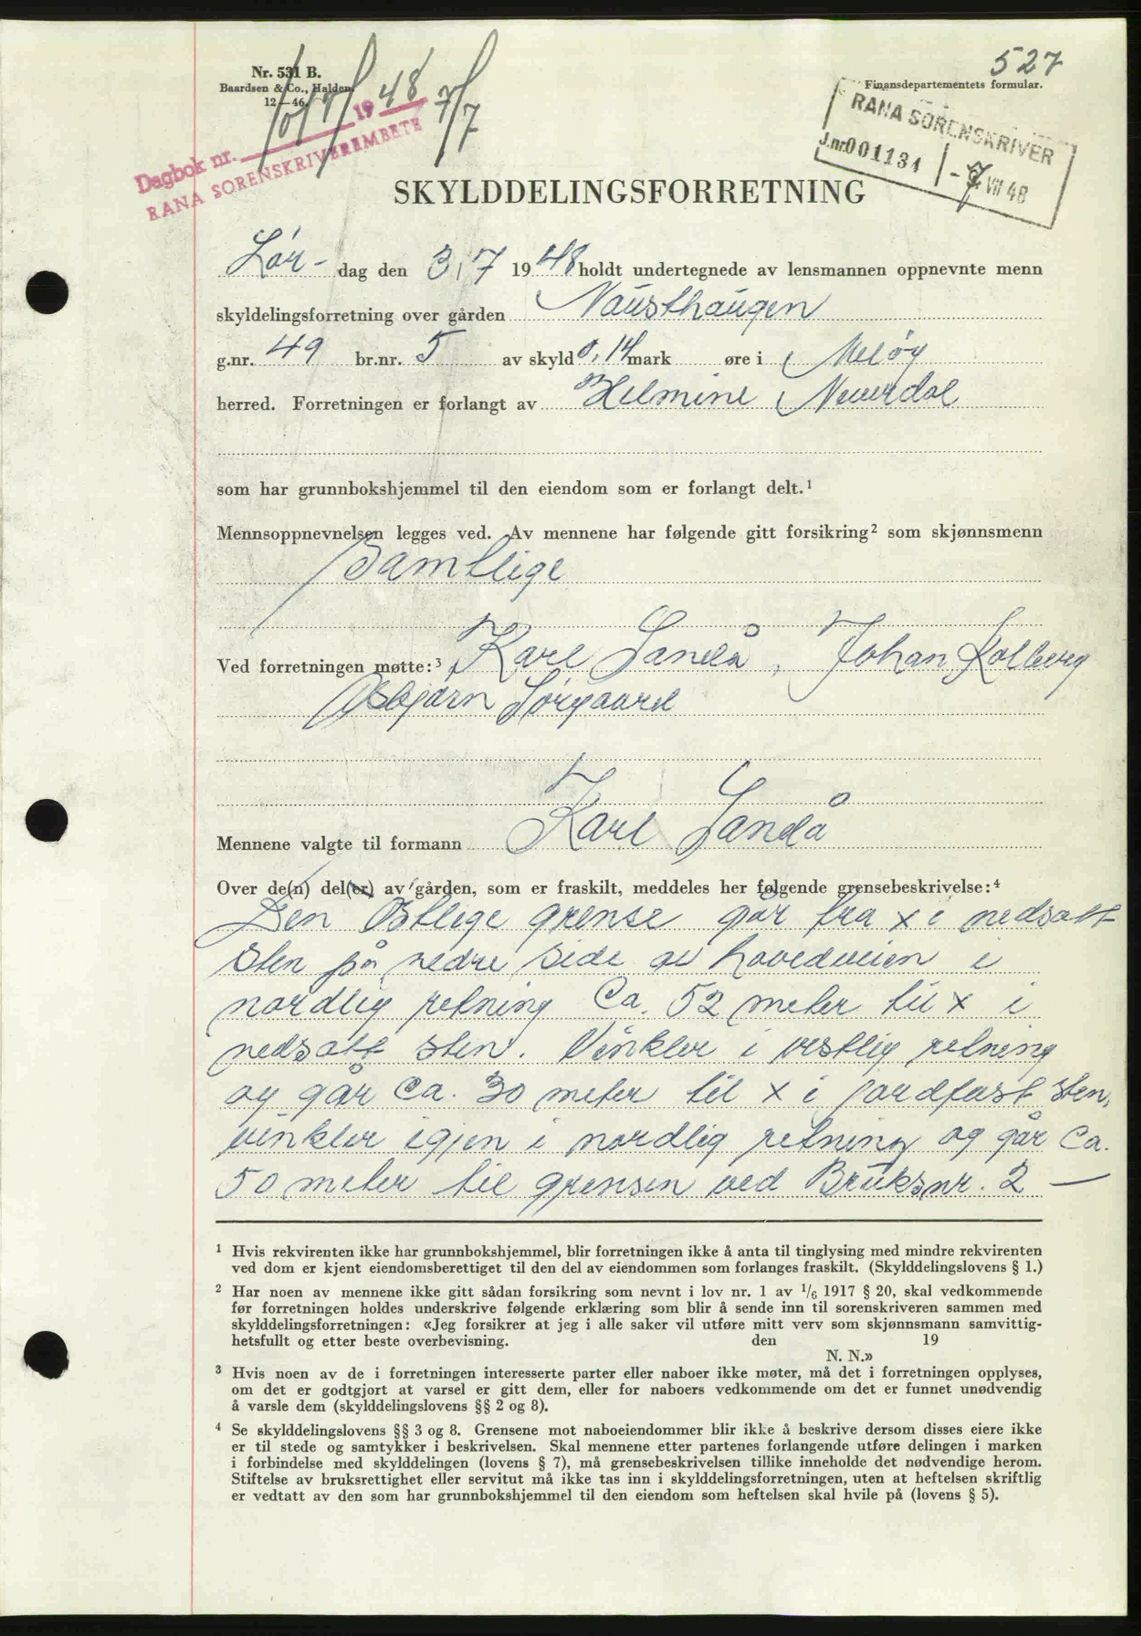 527
Nr. 531 B.
Baardsen & Co., Halden.
12—46.
Finansdepartementets formular.
Dagbok nr. 1948 7/7
RANA SORENSKRIVEREMBETE
RANA SORENSKRIVER
J.nr. 001134 - 7 VII 48
SKYLDDELINGSFORRETNING
Lør- dag den 3/7 1948 holdt undertegnede av lensmannen oppnevnte menn
skyldelingsforretning over gården Nausthaugen
g.nr. 49 br.nr. 5 av skyld 0,14 mark øre i Meløy
herred. Forretningen er forlangt av Helmine Neverdal
som har grunnbokshjemmel til den eiendom som er forlangt delt.¹
Mennsoppnevnelsen legges ved. Av mennene har følgende gitt forsikring² som skjønnsmenn
Samtlige
Ved forretningen møtte:³ Karl Sandå, Johan Kolberg
Asbjørn Sørgaard
Mennene valgte til formann Karl Sandå
Over de(n) del(er) av gården, som er fraskilt, meddeles her følgende grensebeskrivelse:⁴
Den Østlige grense går fra x i nedsatt
sten på nedre side av hovedveien i
nordlig retning Ca. 52 meter til x i
nedsatt sten. Vinkler i vestlig retning
og går Ca. 30 meter til x i jordfast sten,
vinkler igjen i nordlig retning og går Ca.
50 meter til grensen ved Bruksnr. 2 —
¹ Hvis rekvirenten ikke har grunnbokshjemmel, blir forretningen ikke å anta til tinglysing med mindre rekvirenten
ved dom er kjent eiendomsberettiget til den del av eiendommen som forlanges fraskilt. (Skylddelingslovens § 1.)
² Har noen av mennene ikke gitt sådan forsikring som nevnt i lov nr. 1 av 1/6 1917 § 20, skal vedkommende
før forretningen holdes underskrive følgende erklæring som blir å sende inn til sorenskriveren sammen med
skylddelingsforretningen: «Jeg forsikrer at jeg i alle saker vil utføre mitt verv som skjønnsmann samvittig-
hetsfullt og etter beste overbevisning. den 19
N. N.»
³ Hvis noen av de i forretningen interesserte parter eller naboer ikke møter, må det i forretningen opplyses,
om det er godtgjort at varsel er gitt dem, eller for naboers vedkommende om det er funnet unødvendig
å varsle dem (skylddelingslovens §§ 2 og 8).
⁴ Se skylddelingslovens §§ 3 og 8. Grensene mot naboeiendommer blir ikke å beskrive dersom disses eiere ikke
er til stede og samtykker i beskrivelsen. Skal mennene etter partenes forlangende utføre delingen i marken
i forbindelse med skylddelingen (lovens § 7), må grensebeskrivelsen tillike inneholde det nødvendige herom.
Stiftelse av bruksrettighet eller servitut må ikke tas inn i skylddelingsforretningen, uten at heftelsen skriftlig
er vedtatt av den som har grunnbokshjemmel til den eiendom som heftelsen skal hvile på (lovens § 5).